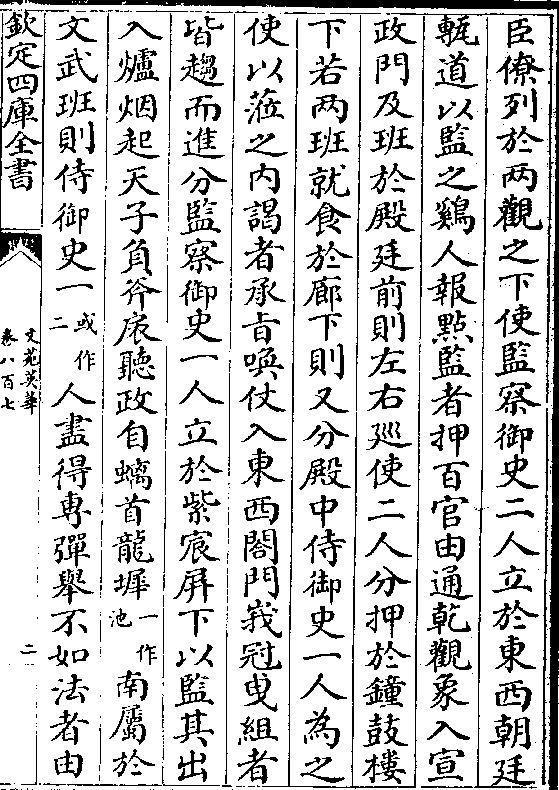 臣僚列於两觀之下使監察御史二人立於東西朝廷
甎道以監之鷄人報㸃監者押百官由通乾觀象入宣
政門及班於殿廷前則左右廵使二人分押於鐘鼓樓
下若两班就食於廊下則又分殿中侍御史一人為之
使以蒞之内謁者承㫖喚仗入東西閤門峩冠曳組者
皆趨而進分監察御史一人立於紫宸屏下以監其出
入爐烟起天子負斧扆聽政自螭首龍墀一作池南屬於
文武班則侍御史一或作二人盡得専彈舉不如法者由
欽定四庫全書
文苑英華
卷八百七
二